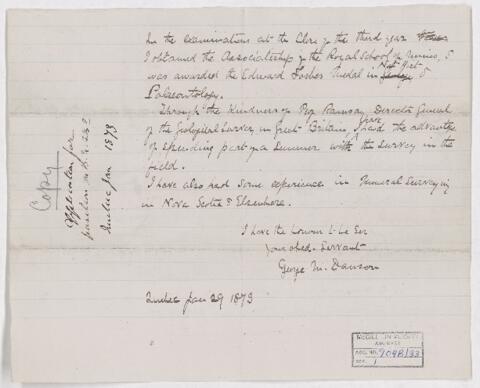 In the examinations at the close of the third year
I obtained the Associateship of the Royal School of Mines, &
was awarded the Edward Forbes Medal in Nat. Hist. &
Palaeontology.
Through the kindness of Prof Ramsay Director General
of the Geological Survey in Great Britain, I have had the advantage
of spending part of a Summer with the Survey in the
field.
I have also had some experience in General Surveying
in Nova Scotia & Elsewhere.
I have the honour to be Sir
Your obed. Servant
George M. Dawson
Quebec Jan 29 1873
Copy
Application for
position on
Quebec Jan 1873
McGILL UNIVERSITY
ARCHIVES
ACC. NO.
REF. 1